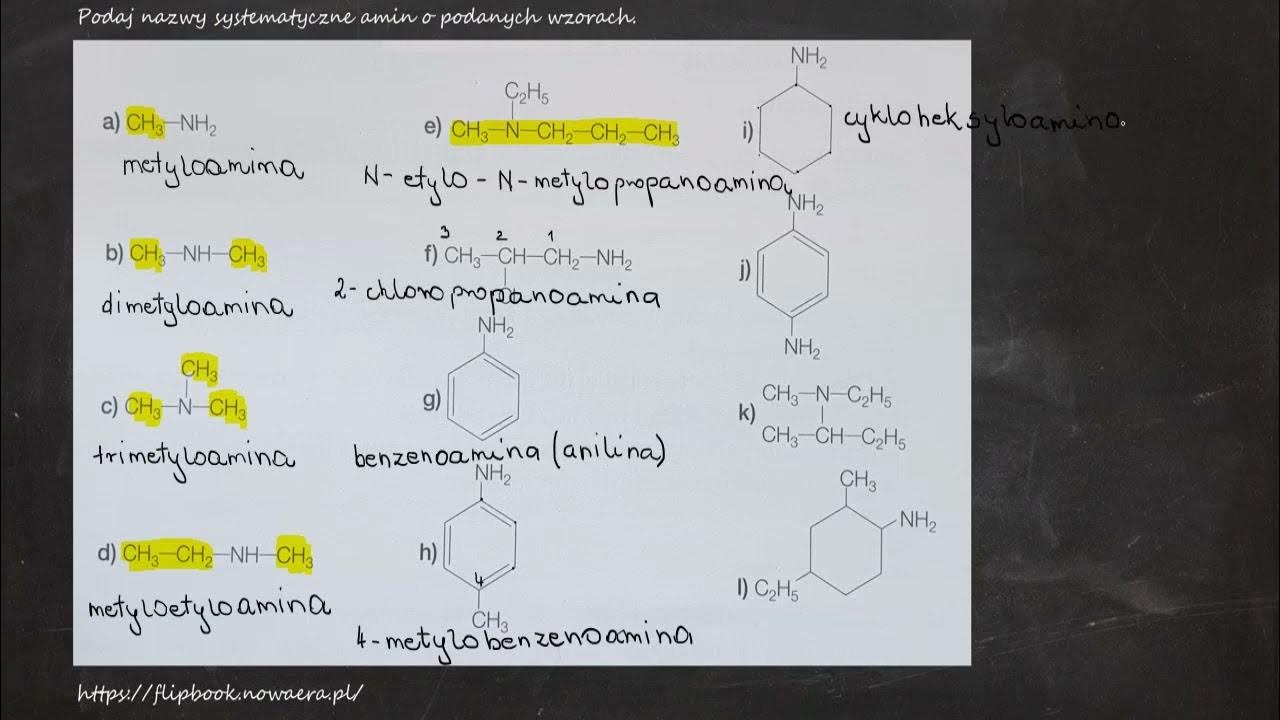 Podaj nazwy systematyczne amin o podanych wzorach.
a) CH₃—NH₂
metyloamina
b) CH₃—NH—CH₃
dimetyloamina
CH₃
c) CH₃—N—CH₃
trimetyloamina
d) CH₃—CH₂—NH—CH₃
metyloetyloamina
C₂H₅
e) CH₃—N—CH₂—CH₂—CH₃
N- etylo - N- metylopropanoamina
3 2 1
f) CH₃—CH—CH₂—NH₂
2- chloropropanoamina
NH₂
g)
benzenoamina (anilina)
NH₂
h)
4
CH₃
4-metylobenzenoamina
NH₂
i)
cykloheksyloamina
NH₂
j)
NH₂
k) CH₃—N—C₂H₅
CH₃—CH—C₂H₅
CH₃
NH₂
l) C₂H₅
https://flipbook.nowaera.pl/